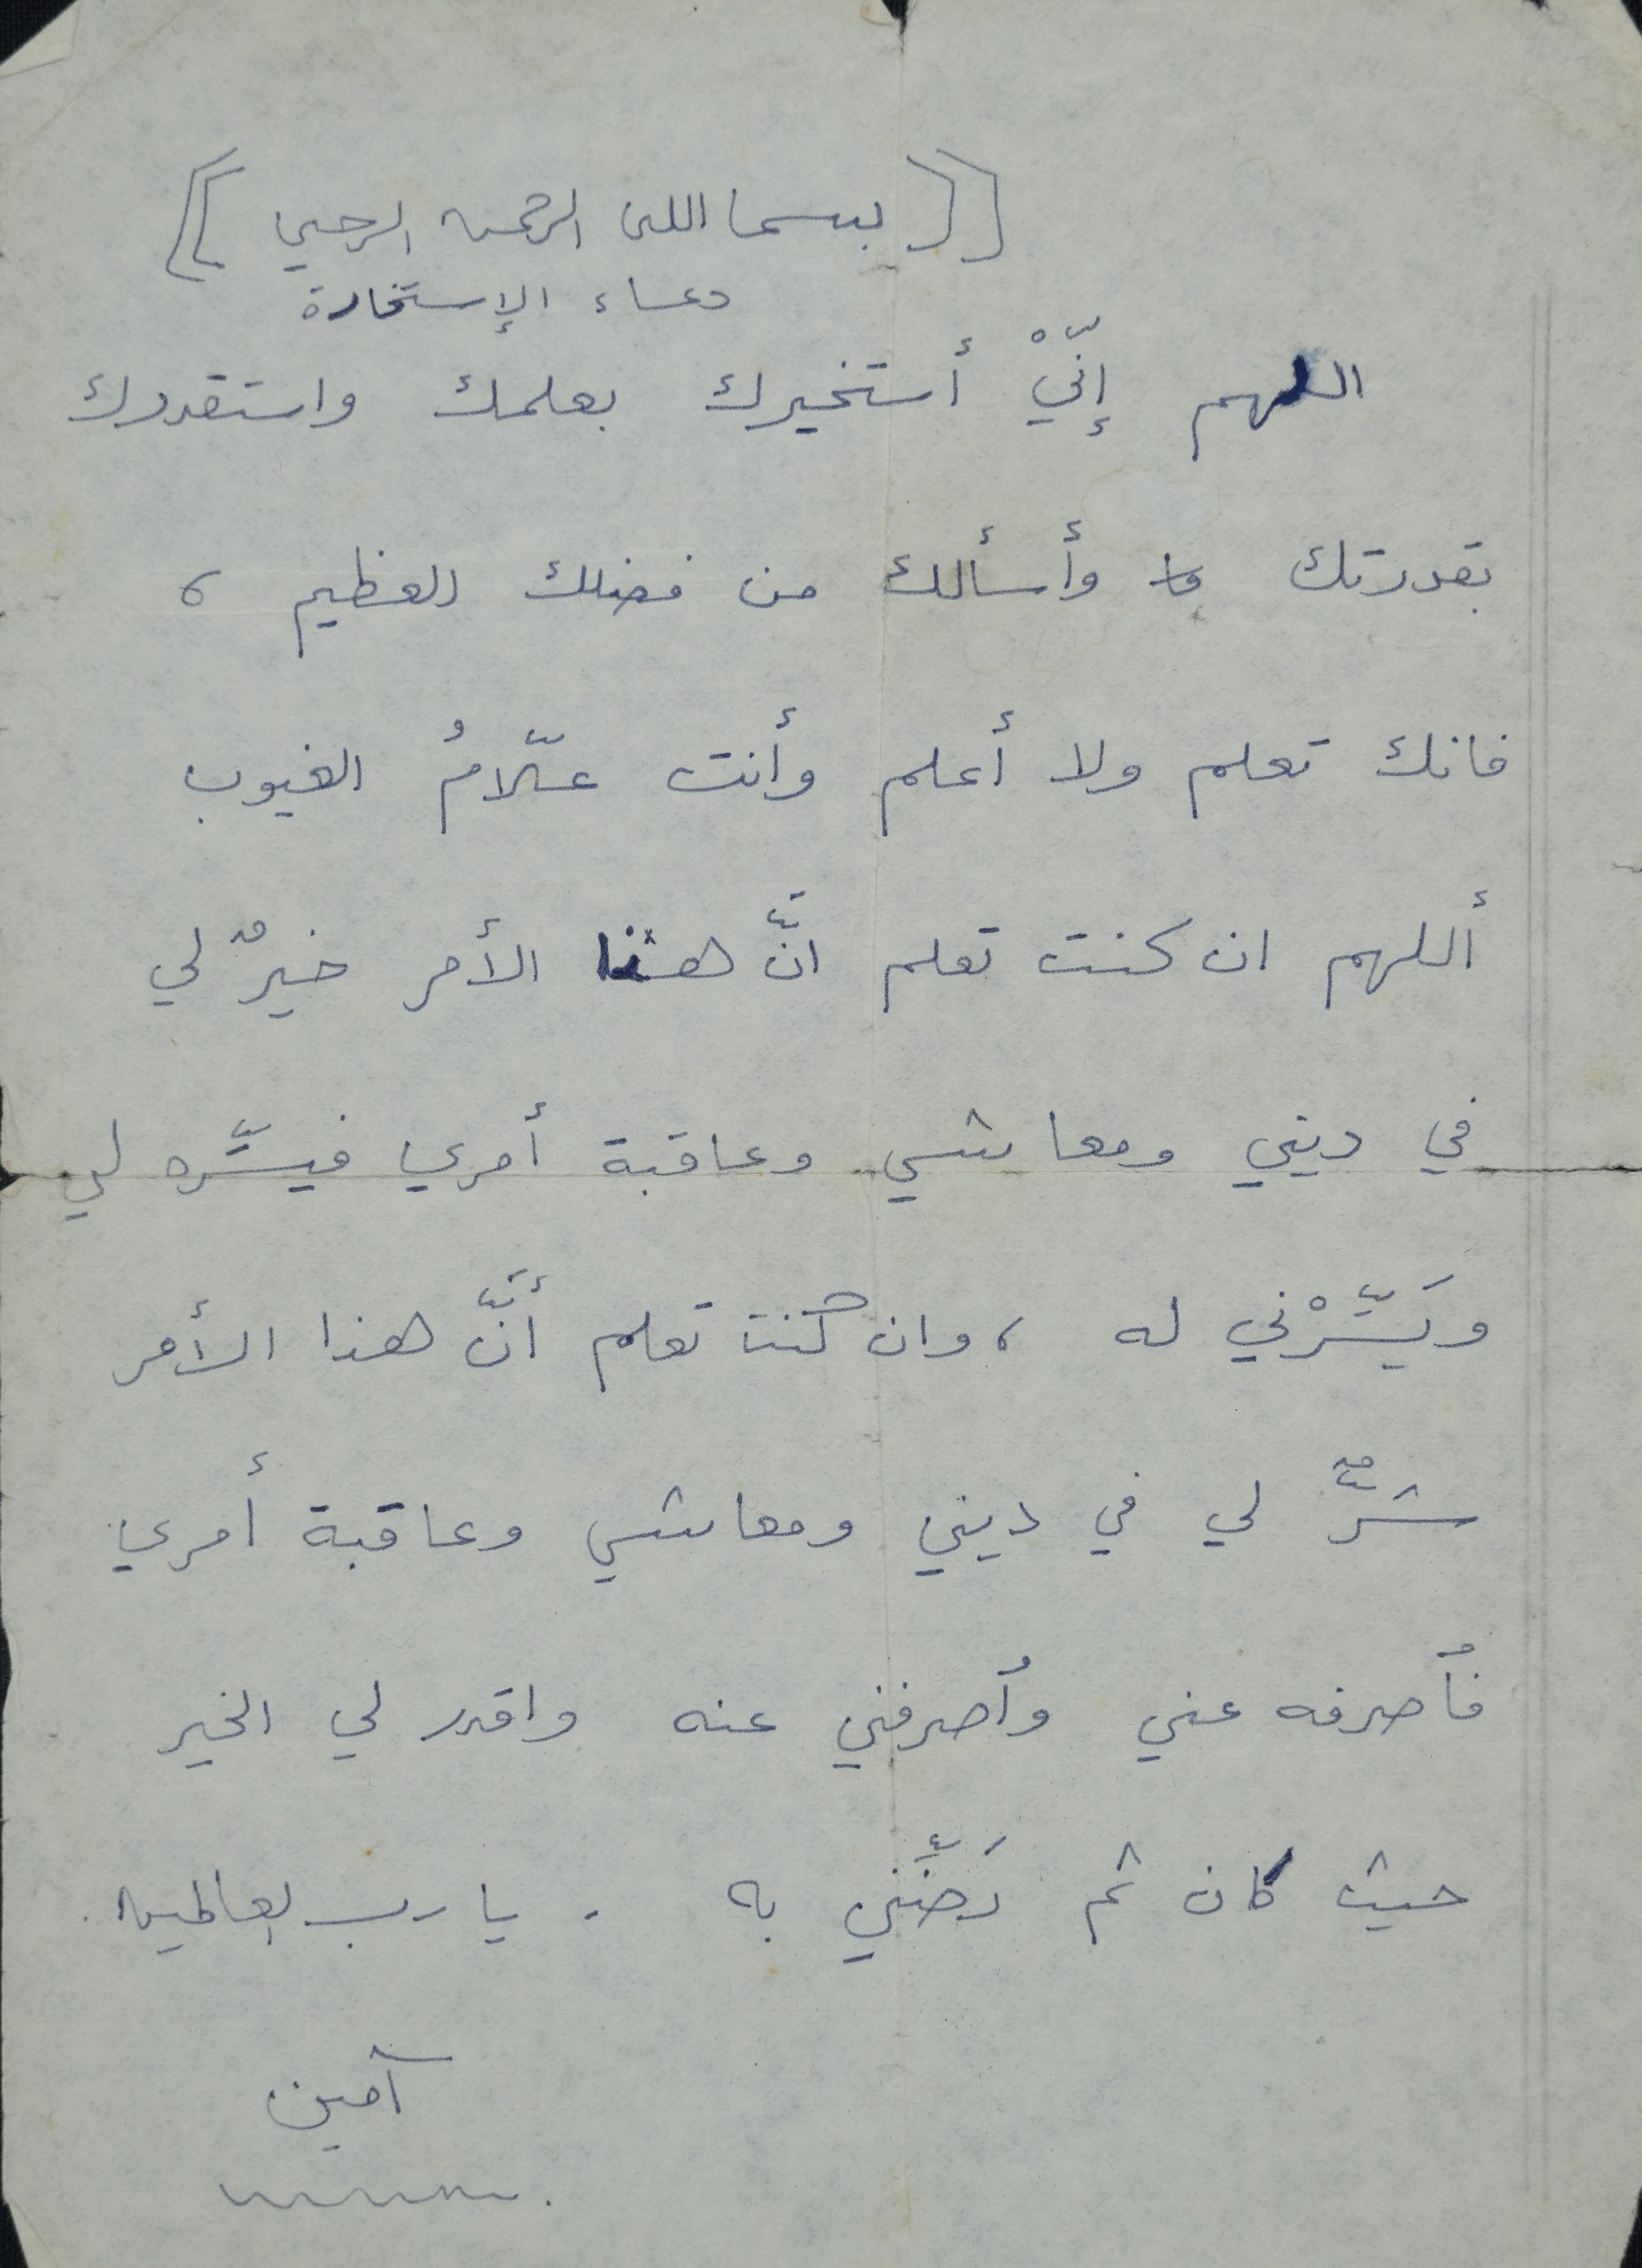 ((بسم الله الرحمن الرحيم))
دعاء الإستخارة
اللهم إنّيْ أستخيرك بعلمك واستقدرك
بقدرتك وأسألك من فضلك العظيم ،
فانك تعلم ولا أعلم وأنت علّامُ الغيوب
أللهم ان كنت تعلم انَّ هذا الأمر خيرٌ لي
في ديني ومعاشي وعاقبة أمري فيسّره لي
ويَسِّرْني له ، وان كنت تعلم أنَّ هذا الأمر
شَرٌّ لي في ديني ومعاشي وعاقبة أمري
فاُصرفه عني واُصرفني عنه واقدر لي الخير
حيث كان ثم رَضِّني به . يا رب العالمين .
آمين